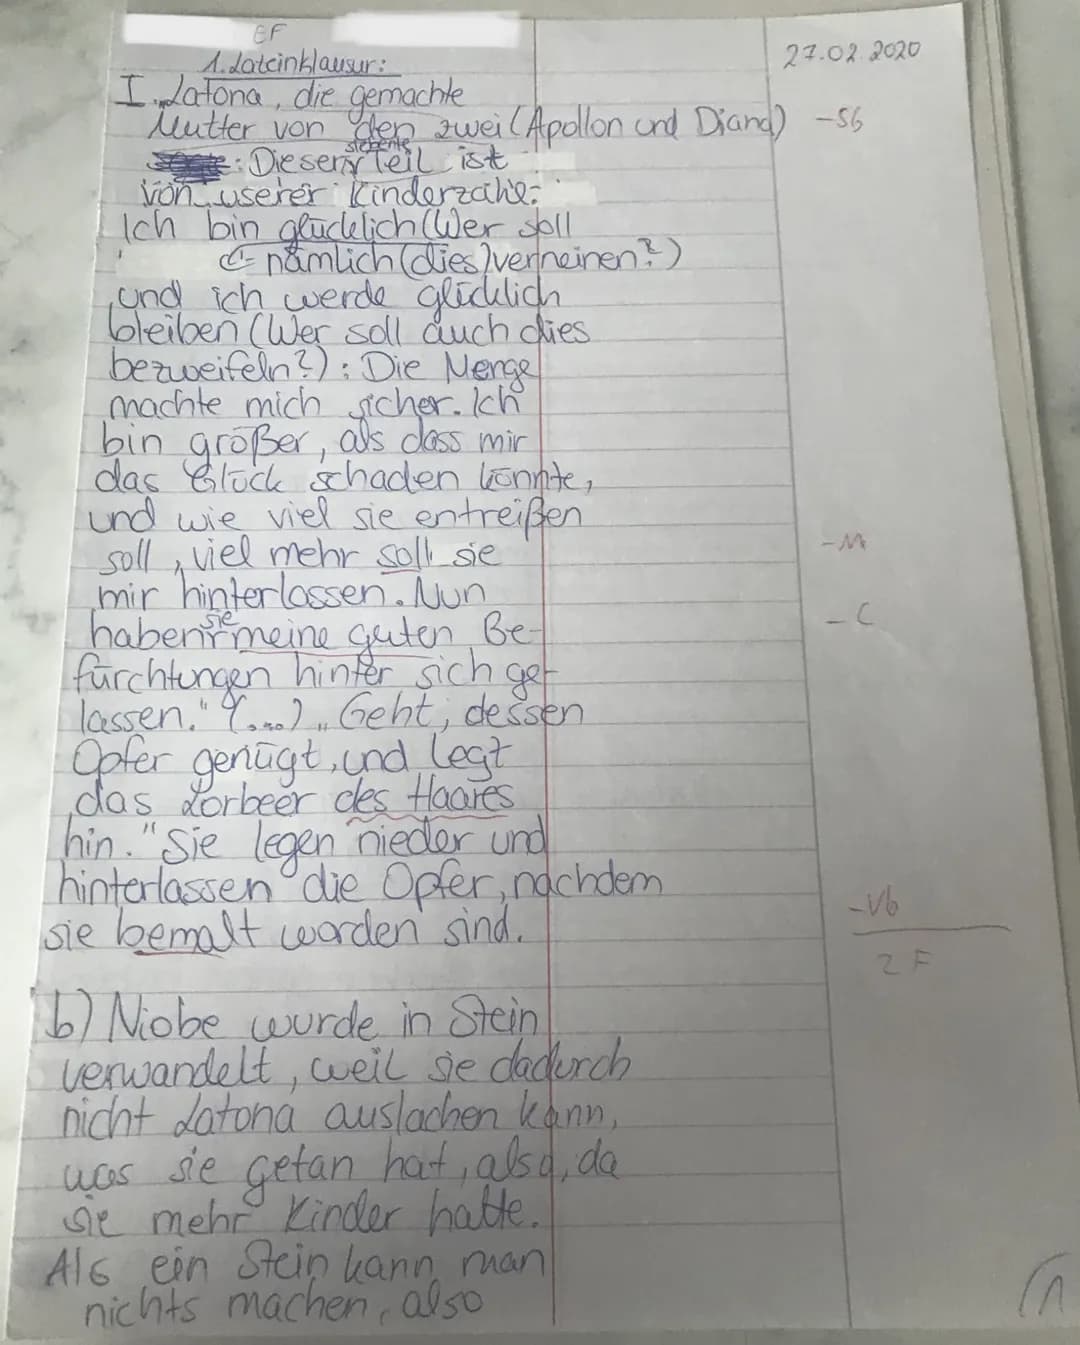 EF
1. Lateinklausur:
27.02.2020
I. Latona, die gemachte
Mutter von den zwei (Apollon und Diana) -Sb
: Dieser siebente Teil ist
von userer Kinderzahl.
Ich bin glücklich (Wer soll
nämlich (dies) verneinen?)
und ich werde glücklich
bleiben (Wer soll auch dies
bezweifeln?): Die Menge
machte mich sicher. Ich
bin größer, als dass mir
das Glück schaden könnte,
und wie viel sie entreißen
soll, viel mehr soll sie -M
mir hinterlassen. Nun
haben sie meine guten Be- -C
fürchtungen hinter sich ge-
lassen." (...) „Geht, dessen
Opfer genügt, und legt
das Lorbeer des Haares
hin." Sie legen nieder und
hinterlassen die Opfer, nachdem -Vb
sie bemalt worden sind.
2 F
b) Niobe wurde in Stein
verwandelt, weil sie dadurch
nicht Latona auslachen kann,
was sie getan hat, also, da
sie mehr Kinder hatte.
Als ein Stein kann man
nichts machen, also
1